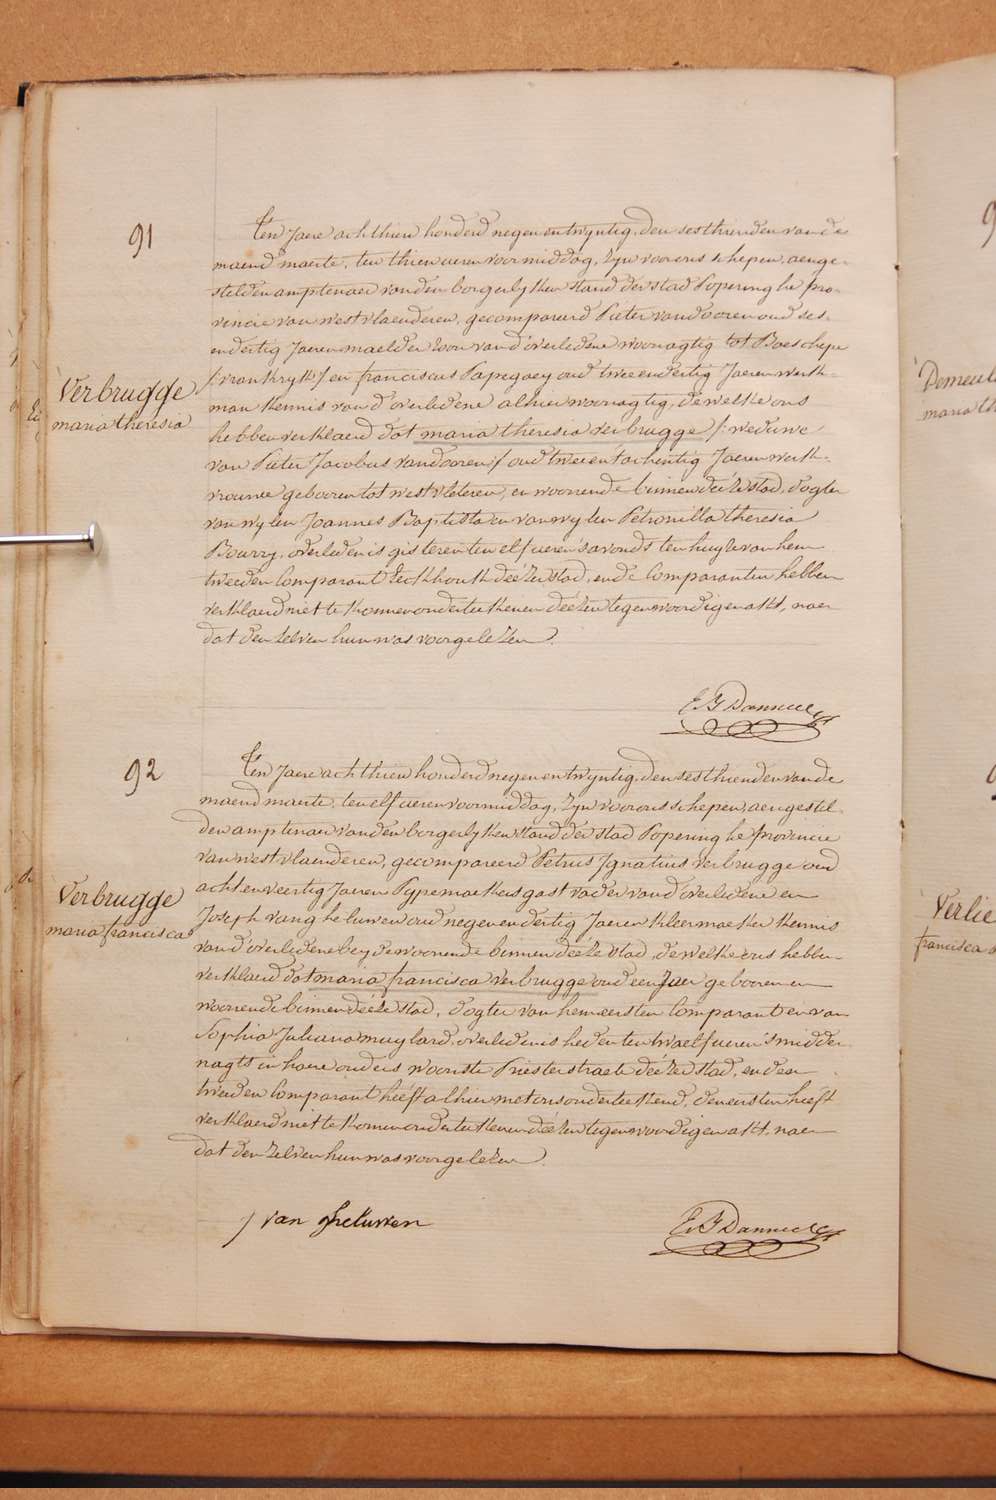 91
Ten Jaere achthien honderd negen en twyntig, den sesthienden van de
maend maerte, ten thien ueren voormiddag, zyn voor ons schepen, aenge-
stelden amptenaer van den borgerlyken stand der stad Poperinghe pro-
vincie van westvlaenderen, gecompareerd Pieter vandooren oud ses-
endertig Jaeren maelder zoon van d'overledene woonagtig tot Boeschepe
/:vrankryk:/ en franciscus Papegaey oud twee en dertig Jaeren werk-
man kennis van d'overledene alhier woonagtig, dewelke ons
Verbrugge
maria theresia
hebben verklaerd dat maria theresia verbrugge /: weduwe
van Pieter Jacobus vandooren :/ oud twee en tachentig Jaeren werk-
vrouwe gebooren tot westvleteren, en woonende binnen déeze stad, dogter
van wylen Joannes Baptista en van wylen Petronilla theresia
Bourry, overleden is gisteren ten elf ueren s'avonds ten huyze van hem
tweeden Comparant Eeckhouk déézer stad, en de Comparanten hebben
verklaerd niet te konnen onderteekenen déézen tegenwoordigen akt, naer
dat den zelven hun was voorgelezen.
E J Danneel
92
Ten Jaere achthien honderd negen en twyntig, den sesthienden van de
maend maerte, ten elf ueren voormiddag, zyn voor ons schepen, aengestel-
den amptenaer van den borgerlyken stand der stad Poperinghe provincie
van westvlaenderen, gecompareerd Petrus Ignatius verbrugge oud
acht en veertig Jaeren Pypemaekersgast vader van d'overledene en
Verbrugge
maria francisca
Joseph vangheluwen oud negen en dertig Jaeren kleermaeker kennis
van d'overledene beyde woonende binnen deeze stad, dewelke ons hebben
verklaerd dat maria francisca verbrugge oud een Jaer gebooren en
woonende binnen déeze stad, dogter van hem eersten Comparant en van
Sophia Juliana muylard, overleden is heden ten twaelf ueren 's midder-
nagts in haere ouders woonste Priesterstraete déézer stad, en den
tweeden Comparant heéft alhier met ons onderteekend, den eersten heéft
verklaerd niet te konnen onderteekenen déézen tegenwoordigen akt, naer
dat den zelven hun was voorgelezen.
J van gheluwen
E J Danneel
Demeule
maria th
Verlie
francisca